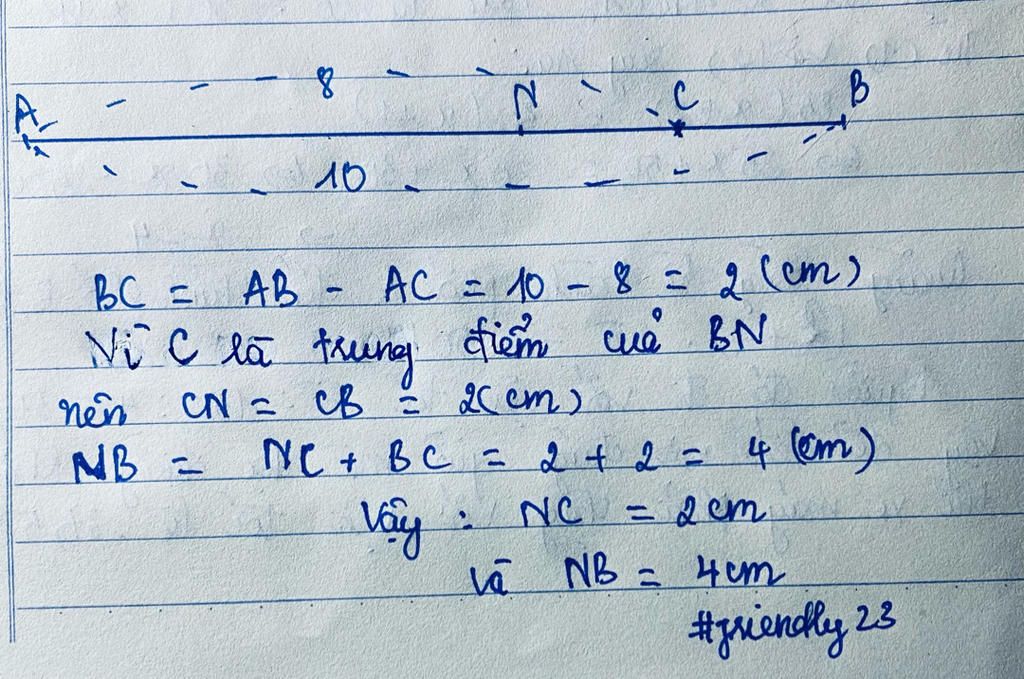 8
A N C B
10
BC = AB - AC = 10 - 8 = 2 (cm)
Vì C là trung điểm của BN
nên CN = CB = 2(cm)
NB = NC + BC = 2 + 2 = 4 (cm)
Vậy : NC = 2cm
và NB = 4cm
#friendly 23